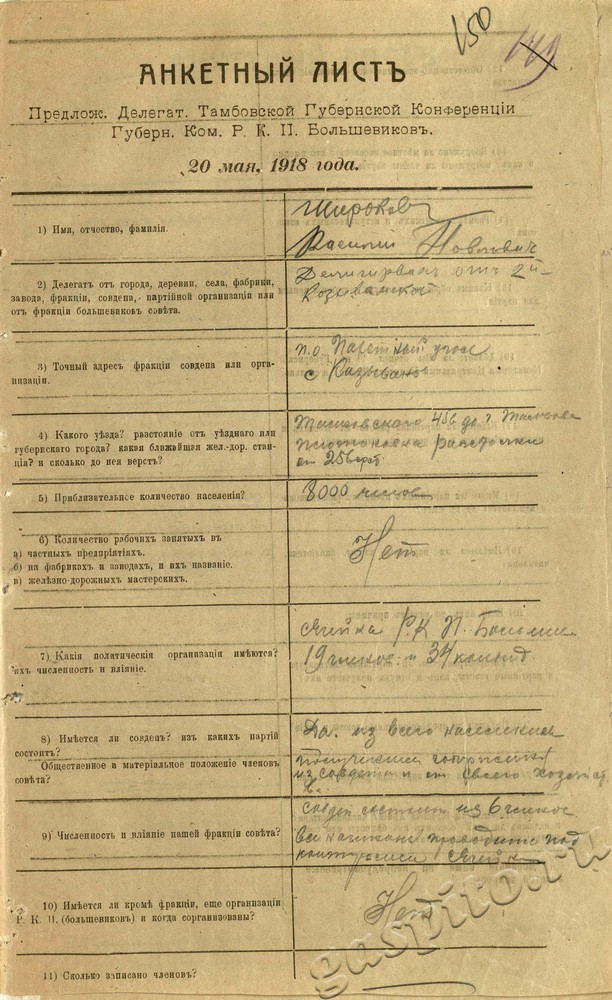 150
149
АНКЕТНЫЙ ЛИСТЪ
Предлож. Делегат. Тамбовской Губернской Конференціи
Губерн. Ком. Р. К. П. Большевиковъ.
20 мая, 1918 года.
1) Имя, отчество, фамилія.
Широков
Василий Павлович
2) Делегатъ отъ города, деревни, села, фабрики,
завода, фракціи, совдепа, партійной организаціи или
отъ фракціи большевиковъ совѣта.
отъ 2й
3) Точный адресъ фракціи совдепа или орга-
низаціи.
п.о.
с
4) Какого уѣзда? разстояніе отъ уѣзднаго или
губернскаго города? какая ближайшая жел.-дор. стан-
ція? и сколько до нея верстъ?
45в до г.
от 25 верст
5) Приблизительное количество населенія?
8000 человек
6) Количество рабочихъ занятыхъ въ
а) частныхъ предпріятіяхъ.
б) на фабрикахъ и заводахъ, и ихъ названіе.
в) желѣзно-дорожныхъ мастерскихъ.
Нет
7) Какія политическія организаціи имѣются?
ихъ численность и вліяніе.
Ячейка Р.К.П. Больше
19 членов и 34
8) Имѣется ли совдепъ? изъ какихъ партій
состоитъ?
Общественное и матеріальное положеніе членовъ
совѣта?
Да. из всего населения
из совдепа и от своего хозяйст
в.
9) Численность и вліяніе нашей фракціи совѣта?
совдеп состоит из 6 членов
под
ячейки
10) Имѣется ли кромѣ фракціи, еще организаціи
Р. К. П. (большевиковъ) и когда сорганизованы?
Нет
11) Сколько записано членовъ?
gaspito.ru